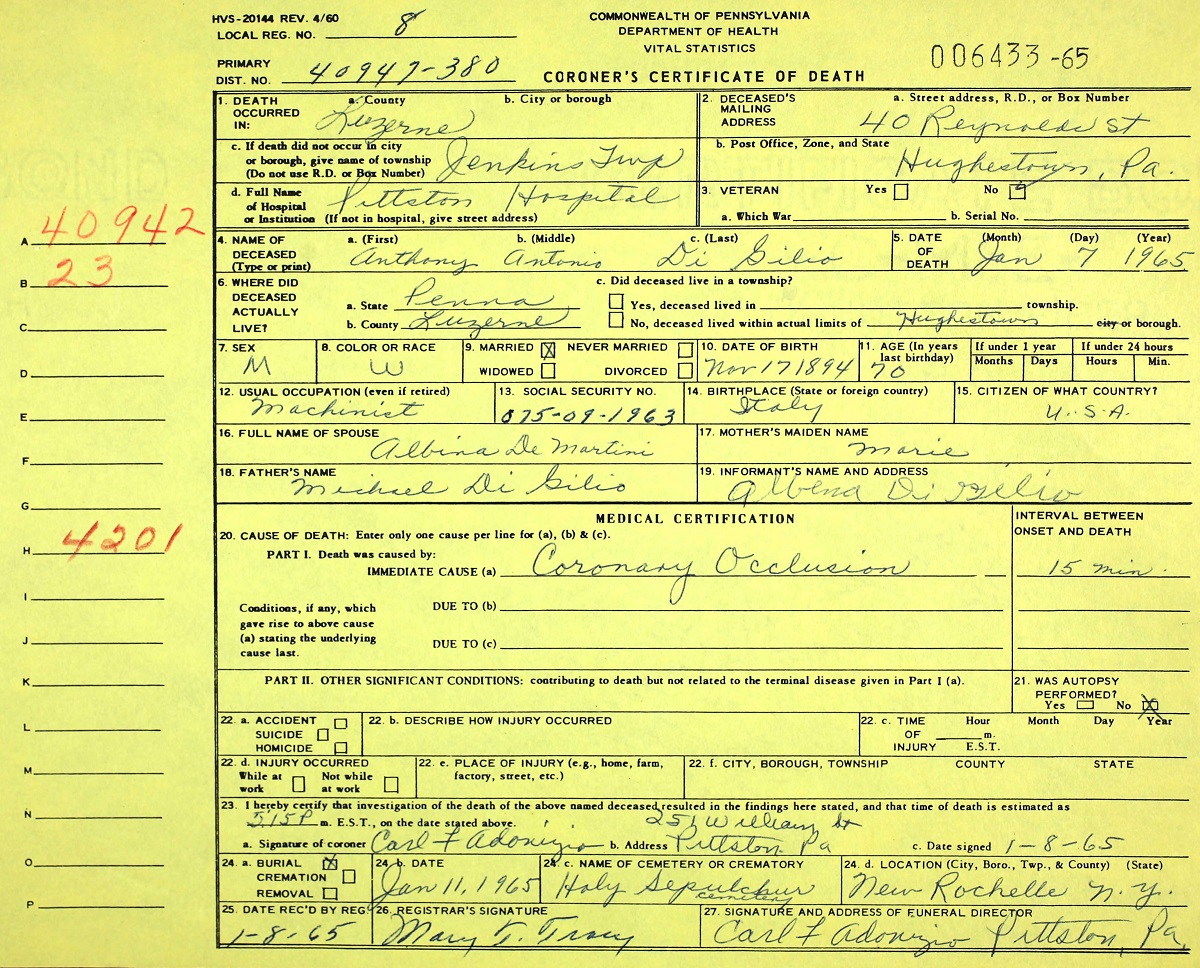 HVS-20144 REV. 4/60
LOCAL REG. NO. 8
COMMONWEALTH OF PENNSYLVANIA
DEPARTMENT OF HEALTH
VITAL STATISTICS
006433-65
PRIMARY
DIST. NO. 40947-380
CORONER'S CERTIFICATE OF DEATH
1. DEATH OCCURRED IN:
a. County Luzerne
b. City or borough
c. If death did not occur in city or borough, give name of township (Do not use R.D. or Box Number) Jenkins Twp
d. Full Name of Hospital or Institution (If not in hospital, give street address) Pittston Hospital
2. DECEASED'S MAILING ADDRESS
a. Street address, R.D., or Box Number
40 Reynolds St
b. Post Office, Zone, and State
Hughestown, Pa.
3. VETERAN Yes No
a. Which War b. Serial No.
A 40942
B 23
C
D
E
F
G
H 4201
I
J
K
L
M
N
O
P
4. NAME OF DECEASED (Type or print)
a. (First) b. (Middle) c. (Last)
Anthony Antonio Di Gilio
5. DATE OF DEATH (Month) (Day) (Year)
Jan 7 1965
6. WHERE DID DECEASED ACTUALLY LIVE?
a. State Penna
b. County Luzerne
c. Did deceased live in a township?
Yes, deceased lived in township.
No, deceased lived within actual limits of Hughestown city or borough.
7. SEX M
8. COLOR OR RACE W
9. MARRIED X NEVER MARRIED
WIDOWED DIVORCED
10. DATE OF BIRTH Nov 17 1894
11. AGE (In years last birthday) 70
If under 1 year Months Days
If under 24 hours Hours Min.
12. USUAL OCCUPATION (even if retired)
Machinist
13. SOCIAL SECURITY NO.
075-09-1963
14. BIRTHPLACE (State or foreign country)
Italy
15. CITIZEN OF WHAT COUNTRY?
U.S.A.
16. FULL NAME OF SPOUSE
Albina De Martini
17. MOTHER'S MAIDEN NAME
Marie
18. FATHER'S NAME
Michael Di Gilio
19. INFORMANT'S NAME AND ADDRESS
Albena Di Gilio
MEDICAL CERTIFICATION
INTERVAL BETWEEN ONSET AND DEATH
20. CAUSE OF DEATH: Enter only one cause per line for (a), (b) & (c).
PART I. Death was caused by:
IMMEDIATE CAUSE (a) Coronary Occlusion 15 min.
Conditions, if any, which gave rise to above cause (a) stating the underlying cause last.
DUE TO (b)
DUE TO (c)
PART II. OTHER SIGNIFICANT CONDITIONS: contributing to death but not related to the terminal disease given in Part I (a).
21. WAS AUTOPSY PERFORMED?
Yes No X
22. a. ACCIDENT
SUICIDE
HOMICIDE
22. b. DESCRIBE HOW INJURY OCCURRED
22. c. TIME OF INJURY Hour m. E.S.T. Month Day Year
22. d. INJURY OCCURRED
While at work Not while at work
22. e. PLACE OF INJURY (e.g., home, farm, factory, street, etc.)
22. f. CITY, BOROUGH, TOWNSHIP COUNTY STATE
23. I hereby certify that investigation of the death of the above named deceased resulted in the findings here stated, and that time of death is estimated as
5:15P m. E.S.T., on the date stated above. 251 William St
a. Signature of coroner Carl F Adonizio b. Address Pittston Pa c. Date signed 1-8-65
24. a. BURIAL X
CREMATION
REMOVAL
24. b. DATE
Jan 11, 1965
24. c. NAME OF CEMETERY OR CREMATORY
Holy Sepulchur
cemetery
24. d. LOCATION (City, Boro., Twp., & County) (State)
New Rochelle N.Y.
25. DATE REC'D BY REG.
1-8-65
26. REGISTRAR'S SIGNATURE
Mary T. Tracy
27. SIGNATURE AND ADDRESS OF FUNERAL DIRECTOR
Carl F Adonizio Pittston, Pa.